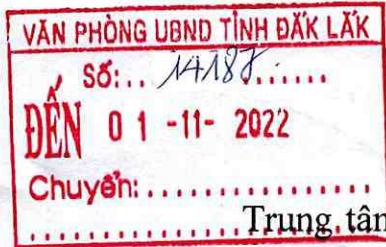 VĂN PHÒNG UBND TỈNH ĐẮK LẮK
Số: .. 14187.......
ĐẾN 01 -11- 2022
Chuyển: ................
.................. Trung tâm